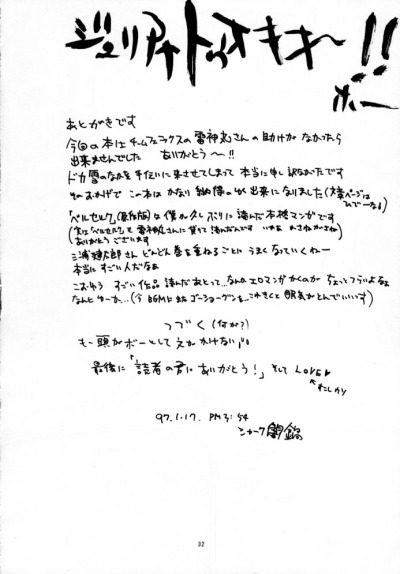 ジュリアナトゥオキオー!!
ボー
あとがきです
今回の本はチームフェニックスの雷神丸さんの助けがなかったら
出来ませんでした ありがとう〜!!
ドカ雪のなかを手伝いに来させてしまって本当に申し訳なかったです
そのおかげでこの本はかなり納得のゆく出来になりました(
ページは
ひでーなぁ)
「ベルセルク」(原作版)は僕が久しぶりに読んだ本格マンガです
(実は「ベルセルク」も雷神丸さんに貸りて読んだんです いやぁ
(ありがとうございます)
三浦建太郎さんどんどん巻を重ねるごとにうまくなっていくねー
本当にすごい人だなぁ
こーゆうすごい作品読んだあとって…なんかエロマンガかくのがちょっとつらいよなぁ
なんとゆーか…(今BGMは
ゴーショーグンを…これきくと眠気がとんでいいっす)
つづく(何が?)
もー頭がボーとしてえがかけない
最後に「読者の君にありがとう!」そしてLOVE♥
97.1.17. PM3:54
シャーク
32